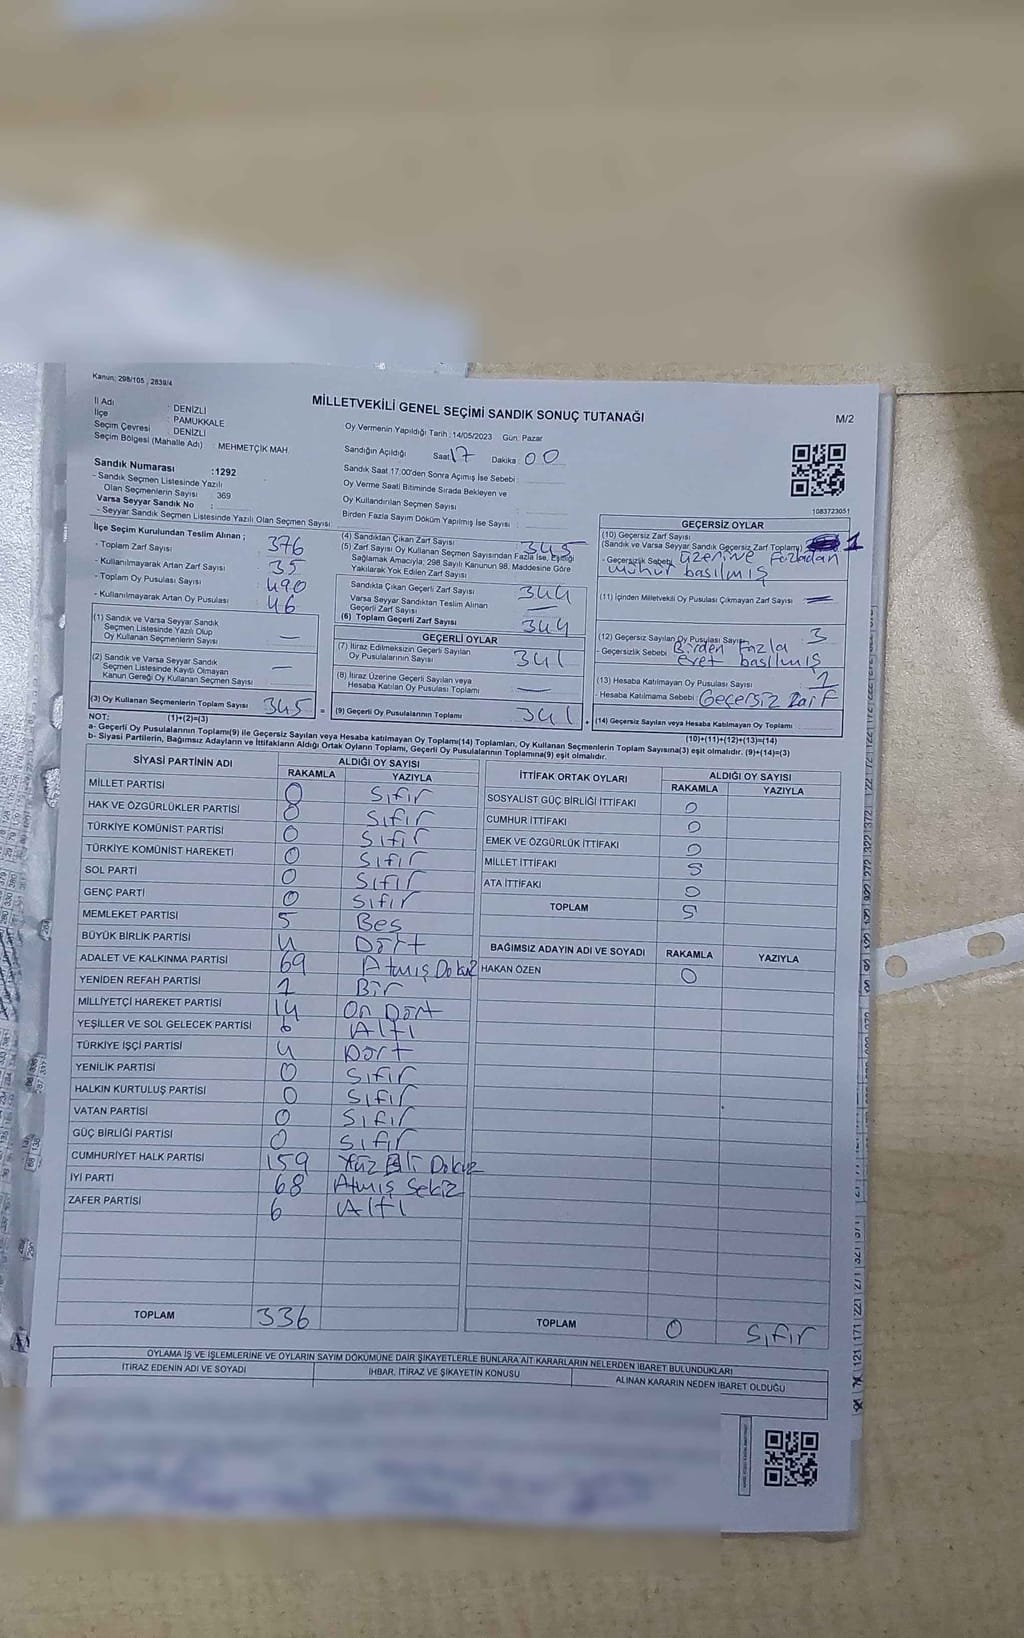 Kanun: 298/105 , 2839/4
MİLLETVEKİLİ GENEL SEÇİMİ SANDIK SONUÇ TUTANAĞI
M/2
İl Adı : DENİZLİ
İlçe : PAMUKKALE
Seçim Çevresi : DENİZLİ
Seçim Bölgesi (Mahalle Adı) : MEHMETÇİK MAH.
Sandık Numarası :1292
- Sandık Seçmen Listesinde Yazılı
Olan Seçmenlerin Sayısı : 369
Varsa Seyyar Sandık No :
- Seyyar Sandık Seçmen Listesinde Yazılı Olan Seçmen Sayısı :
Oy Vermenin Yapıldığı Tarih : 14/05/2023 Gün: Pazar
Sandığın Açıldığı Saat 17 Dakika : 00
Sandık Saat 17:00'den Sonra Açımış İse Sebebi :
Oy Verme Saati Bitiminde Sırada Bekleyen ve
Oy Kullandırılan Seçmen Sayısı :
Birden Fazla Sayım Döküm Yapılmış İse Sayısı :
1083723051
İlçe Seçim Kurulundan Teslim Alınan ;
- Toplam Zarf Sayısı : 376
- Kullanılmayarak Artan Zarf Sayısı : 35
- Toplam Oy Pusulası Sayısı : 490
- Kullanılmayarak Artan Oy Pusulası : 46
(1) Sandık ve Varsa Seyyar Sandık
Seçmen Listesinde Yazılı Olup
Oy Kullanan Seçmenlerin Sayısı : —
(2) Sandık ve Varsa Seyyar Sandık
Seçmen Listesinde Kayıtlı Olmayan
Kanun Gereği Oy Kullanan Seçmen Sayısı : —
(3) Oy Kullanan Seçmenlerin Toplam Sayısı : 345
(1)+(2)=(3)
(4) Sandıktan Çıkan Zarf Sayısı : 345
(5) Zarf Sayısı Oy Kullanan Seçmen Sayısından Fazla İse, Eşitliği
Sağlamak Amacıyla; 298 Sayılı Kanunun 98. Maddesine Göre
Yakılarak Yok Edilen Zarf Sayısı :
Sandıkta Çıkan Geçerli Zarf Sayısı : 344
Varsa Seyyar Sandıktan Teslim Alınan
Geçerli Zarf Sayısı : —
(6) Toplam Geçerli Zarf Sayısı : 344
GEÇERLİ OYLAR
(7) İtiraz Edilmeksizin Geçerli Sayılan
Oy Pusulalarının Sayısı : 341
(8) İtiraz Üzerine Geçerli Sayılan veya
Hesaba Katılan Oy Pusulası Toplamı : —
= (9) Geçerli Oy Pusulalarının Toplamı : 341
GEÇERSİZ OYLAR
(10) Geçersiz Zarf Sayısı
(Sandık ve Varsa Seyyar Sandık Geçersiz Zarf Toplamı) 1
- Geçersizlik Sebebi : üzerine fazladan
mühür basılmış
(11) İçinden Milletvekili Oy Pusulası Çıkmayan Zarf Sayısı : —
(12) Geçersiz Sayılan Oy Pusulası Sayısı : 3
- Geçersizlik Sebebi : Birden fazla
evet basılmış
(13) Hesaba Katılmayan Oy Pusulası Sayısı : 1
- Hesaba Katılmama Sebebi : Geçersiz Zarf
(14) Geçersiz Sayılan veya Hesaba Katılmayan Oy Toplamı
(10)+(11)+(12)+(13)=(14)
NOT:
a- Geçerli Oy Pusulalarının Toplamı(9) ile Geçersiz Sayılan veya Hesaba katılmayan Oy Toplamı(14) Toplamları, Oy Kullanan Seçmenlerin Toplam Sayısına(3) eşit olmalıdır. (9)+(14)=(3)
b- Siyasi Partilerin, Bağımsız Adayların ve İttifakların Aldığı Ortak Oyların Toplamı, Geçerli Oy Pusulalarının Toplamına(9) eşit olmalıdır.
SİYASİ PARTİNİN ADI ALDIĞI OY SAYISI
RAKAMLA YAZIYLA
MİLLET PARTİSİ 0 Sıfır
HAK VE ÖZGÜRLÜKLER PARTİSİ 0 Sıfır
TÜRKİYE KOMÜNİST PARTİSİ 0 Sıfır
TÜRKİYE KOMÜNİST HAREKETİ 0 Sıfır
SOL PARTİ 0 Sıfır
GENÇ PARTİ 0 Sıfır
MEMLEKET PARTİSİ 5 Beş
BÜYÜK BİRLİK PARTİSİ 4 Dört
ADALET VE KALKINMA PARTİSİ 69 Atmış Dokuz
YENİDEN REFAH PARTİSİ 1 Bir
MİLLİYETÇİ HAREKET PARTİSİ 14 On Dört
YEŞİLLER VE SOL GELECEK PARTİSİ 6 Altı
TÜRKİYE İŞÇİ PARTİSİ 4 Dört
YENİLİK PARTİSİ 0 Sıfır
HALKIN KURTULUŞ PARTİSİ 0 Sıfır
VATAN PARTİSİ 0 Sıfır
GÜÇ BİRLİĞİ PARTİSİ 0 Sıfır
CUMHURİYET HALK PARTİSİ 159 Yüz Elli Dokuz
İYİ PARTİ 68 Atmış Sekiz
ZAFER PARTİSİ 6 Altı
TOPLAM 336
İTTİFAK ORTAK OYLARI ALDIĞI OY SAYISI
RAKAMLA YAZIYLA
SOSYALİST GÜÇ BİRLİĞİ İTTİFAKI 0
CUMHUR İTTİFAKI 0
EMEK VE ÖZGÜRLÜK İTTİFAKI 0
MİLLET İTTİFAKI 5
ATA İTTİFAKI 0
TOPLAM 5
BAĞIMSIZ ADAYIN ADI VE SOYADI RAKAMLA YAZIYLA
HAKAN ÖZEN 0
TOPLAM 0 Sıfır
OYLAMA İŞ VE İŞLEMLERİNE VE OYLARIN SAYIM DÖKÜMÜNE DAİR ŞİKAYETLERLE BUNLARA AİT KARARLARIN NELERDEN İBARET BULUNDUKLARI
İTİRAZ EDENİN ADI VE SOYADI İHBAR, İTİRAZ VE ŞİKAYETİN KONUSU ALINAN KARARIN NEDEN İBARET OLDUĞU